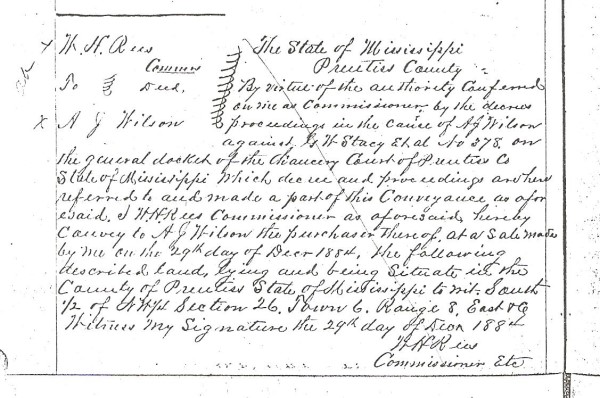 W. H. Rees
Commr
To Deed,
A J Wilson
The State of Mississippi
Prentiss County
By virtue of the authority Conferred
on me as Commissioner by the decree
proceedings in the cause of AJ Wilson
against G W Stacy Et al No 378 on
the general docket of the Chancery Court of Prentiss Co
State of Mississippi Which decree and proceedings are here
referred to and made a part of this Conveyance as afor
esaid. I WH Rees Commissioner as aforesaid, hereby
Convey to A J Wilson the purchaser thereof, at a Sale made
by Me on the 29th day of Decr 1884, the following
described land, lying and being Situate in the
County of Prentiss State of Mississippi to wit- South
1/2 of NW/4 Section 26, Town 6. Range 8, East &c
Witness My Signature the 29th day of Decr 1884
W H Rees
Commissioner Etc